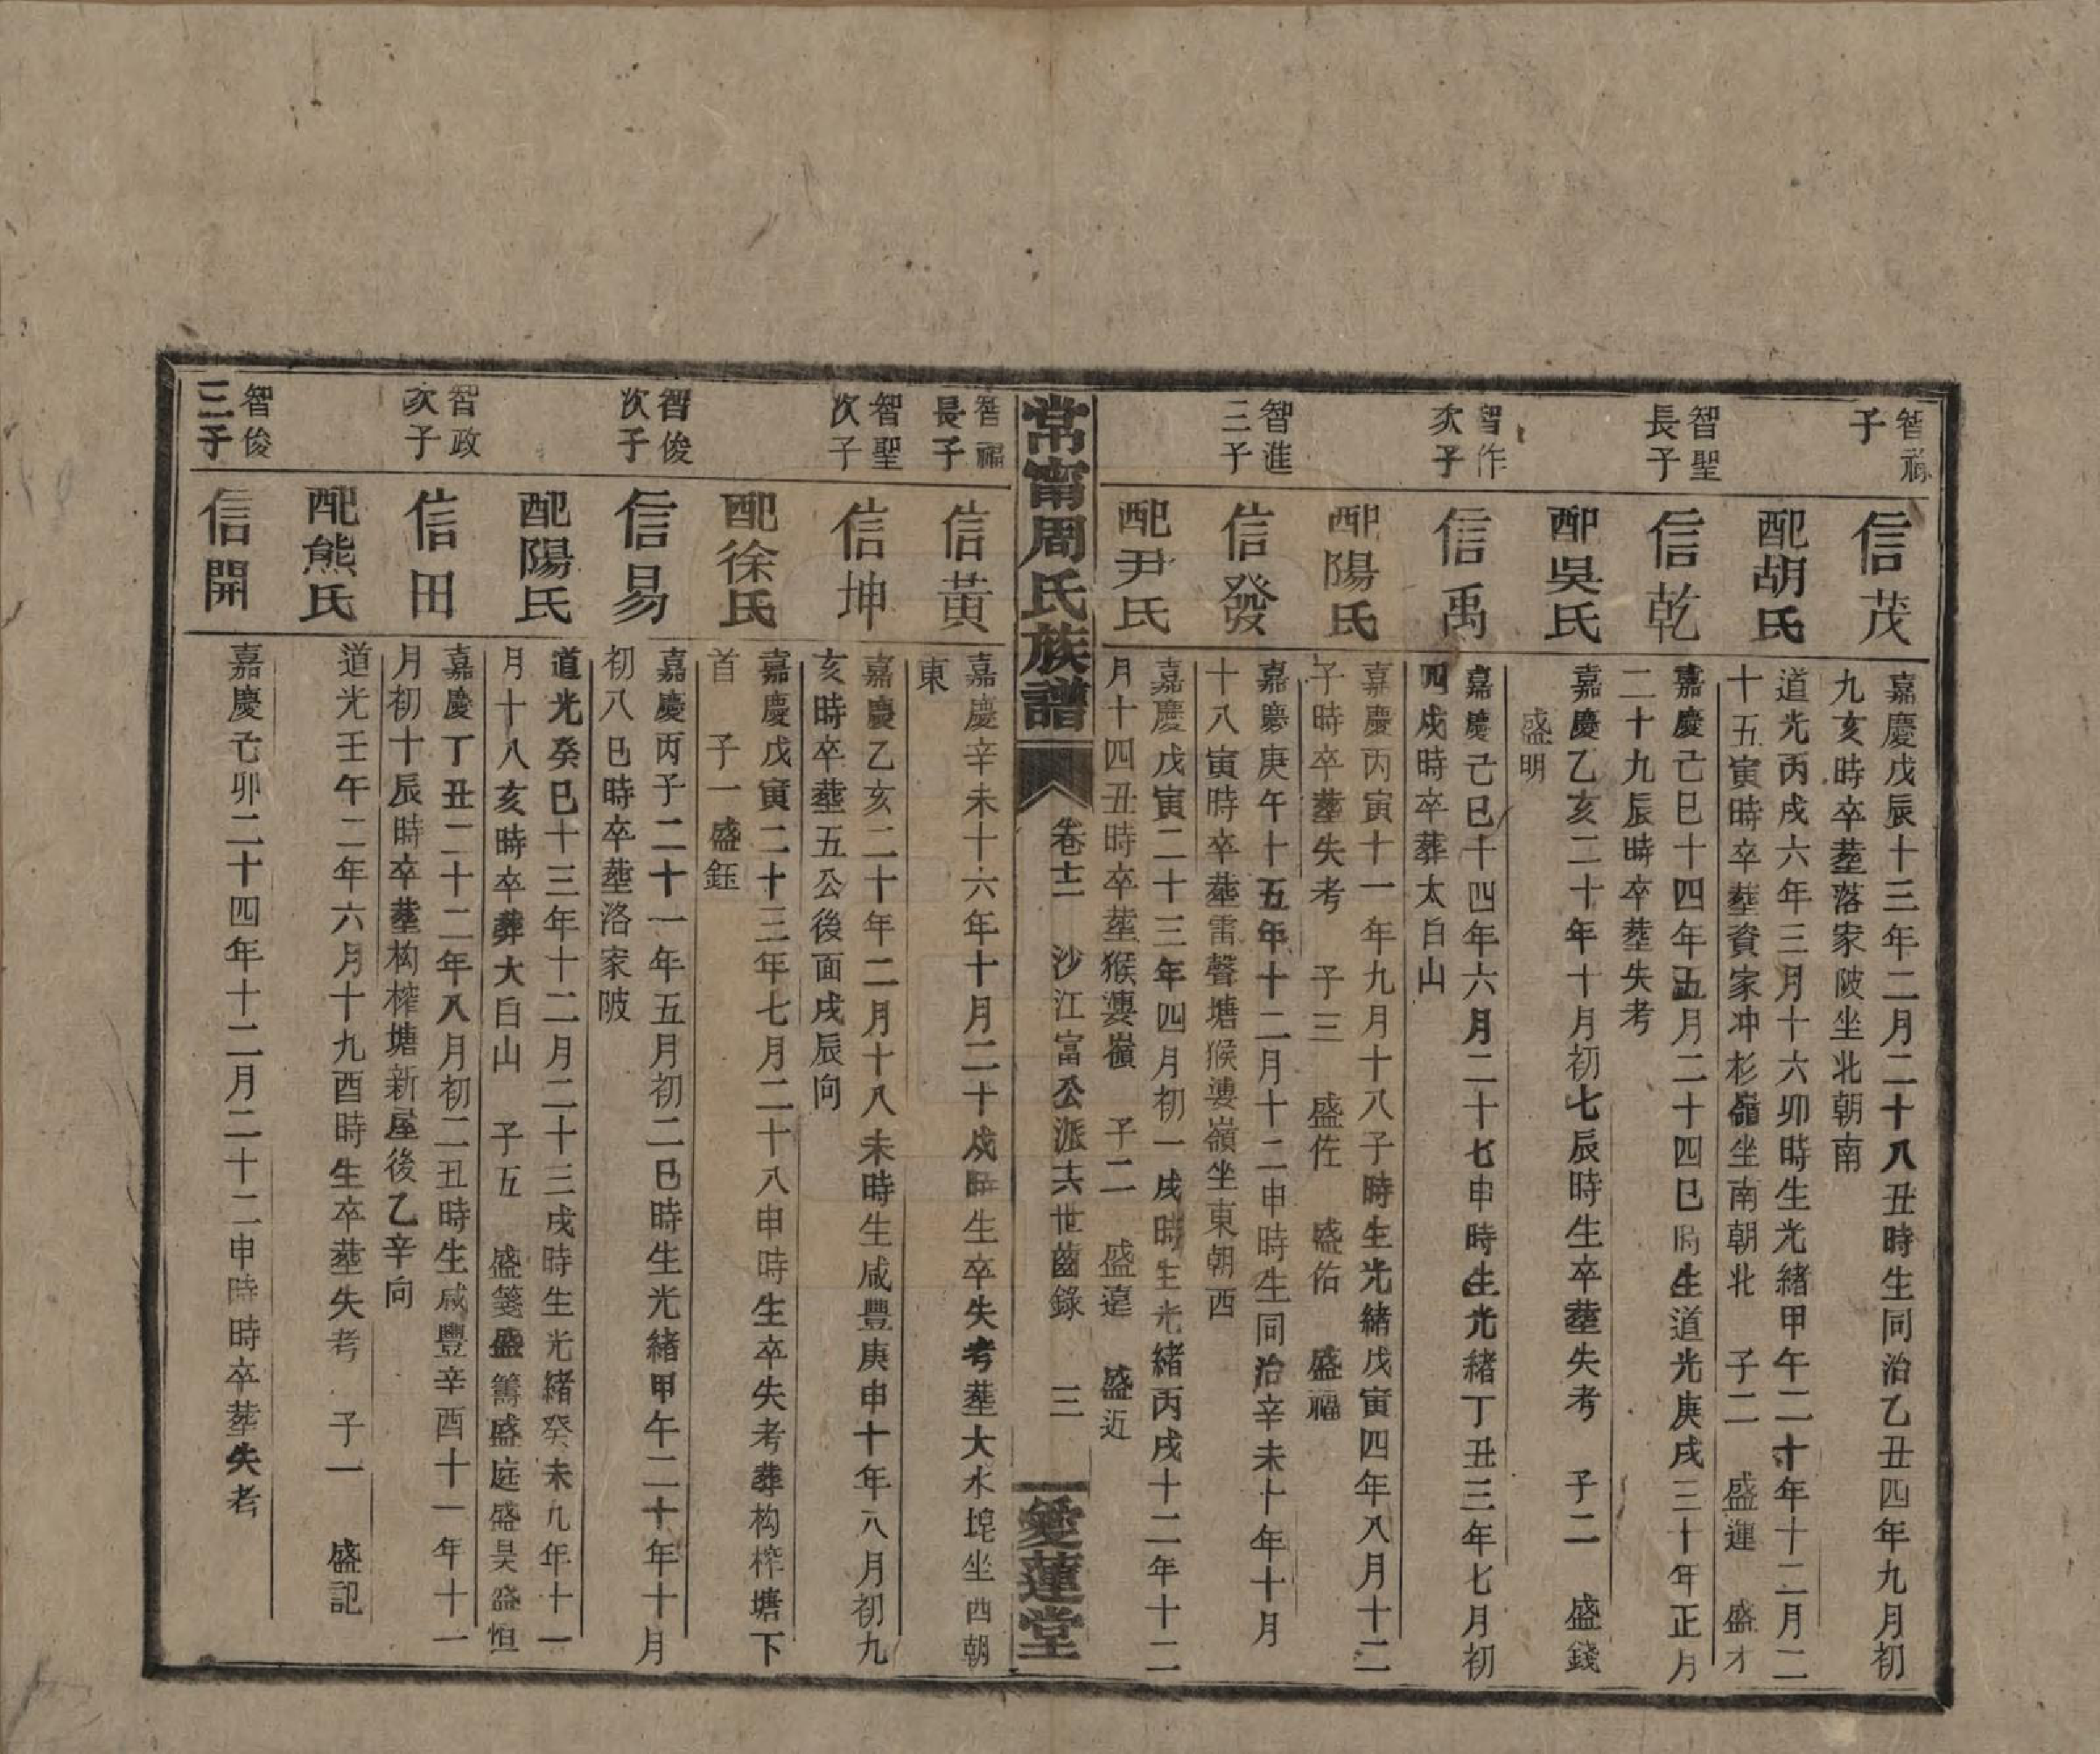 智福
子
信茂
嘉慶戊辰十三年二月二十八丑時生同治乙丑四年九月初
九亥時卒塟落家陂坐北朝南
配胡氏
道光丙戌六年三月十六卯時生光緒甲午二十年十二月二
十五寅時卒塟資家冲杉嶺坐南朝北 子二 盛運 盛才
智聖
長子
信乾
嘉慶己巳十四年五月二十四巳時生道光庚戌三十年正月
二十九辰時卒塟失考
配吳氏
嘉慶乙亥二十年十月初七辰時生卒塟失考 子二 盛錢
盛明
智作
次子
信禹
嘉慶己巳十四年六月二十七申時生光緒丁丑三年七月初
四戌時卒葬太白山
配陽氏
嘉慶丙寅十一年九月十八子時生光緒戊寅四年八月十二
子時卒塟失考 子三 盛佐 盛佑 盛福
智進
三子
信發
嘉慶庚午十五年十二月十二申時生同治辛未十年十月
十八寅時卒塟雷聲塘猴漊嶺坐東朝西
配尹氏
嘉慶戊寅二十三年四月初一戌時生光緒丙戌十二年十二
月十四丑時卒塟猴漊嶺 子二 盛遠 盛近
常甯周氏族譜
卷十二 沙江富公派六世齒錄 三
愛蓮堂
智福
長子
信黃
嘉慶辛未十六年十月二十戌時生卒失考塟大水垸坐西朝
東
智聖
次子
信坤
嘉慶乙亥二十年二月十八未時生咸豐庚申十年八月初九
亥時卒塟五公後面戌辰向
配徐氏
嘉慶戊寅二十三年七月二十八申時生卒失考葬构榨塘下
首 子一盛鈺
智俊
次子
信易
嘉慶丙子二十一年五月初二巳時生光緒甲午二十年十月
初八巳時卒塟洛家陂
配陽氏
道光癸巳十三年十二月二十三戌時生光緒癸未九年十一
月十八亥時卒葬大白山 子五 盛箋盛籌盛庭盛昊盛恒
智政
次子
信田
嘉慶丁丑二十二年八月初二丑時生咸豐辛酉十一年十一
月初十辰時卒塟构榨塘新屋後乙辛向
配熊氏
道光壬午二年六月十九酉時生卒塟失考 子一 盛記
智俊
三子
信開
嘉慶己卯二十四年十二月二十二申時時卒塟失考